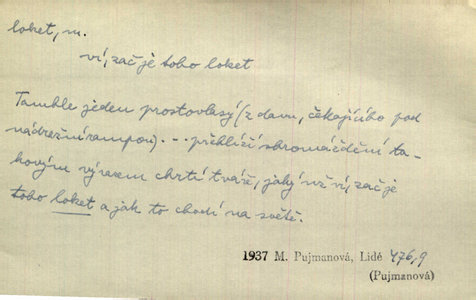 loket, m.
ví, zač je toho loket
Tamhle jeden prostovlasý (z davu, čekajícího pod
nádražní rampou) . - - přehlíží shromáždění ta-
kovým výrazem chrtí tváře, jaký už ví, zač je
toho loket a jak to chodí na světě.
1937 M. Pujmanová, Lidé 476,9
(Pujmanová)